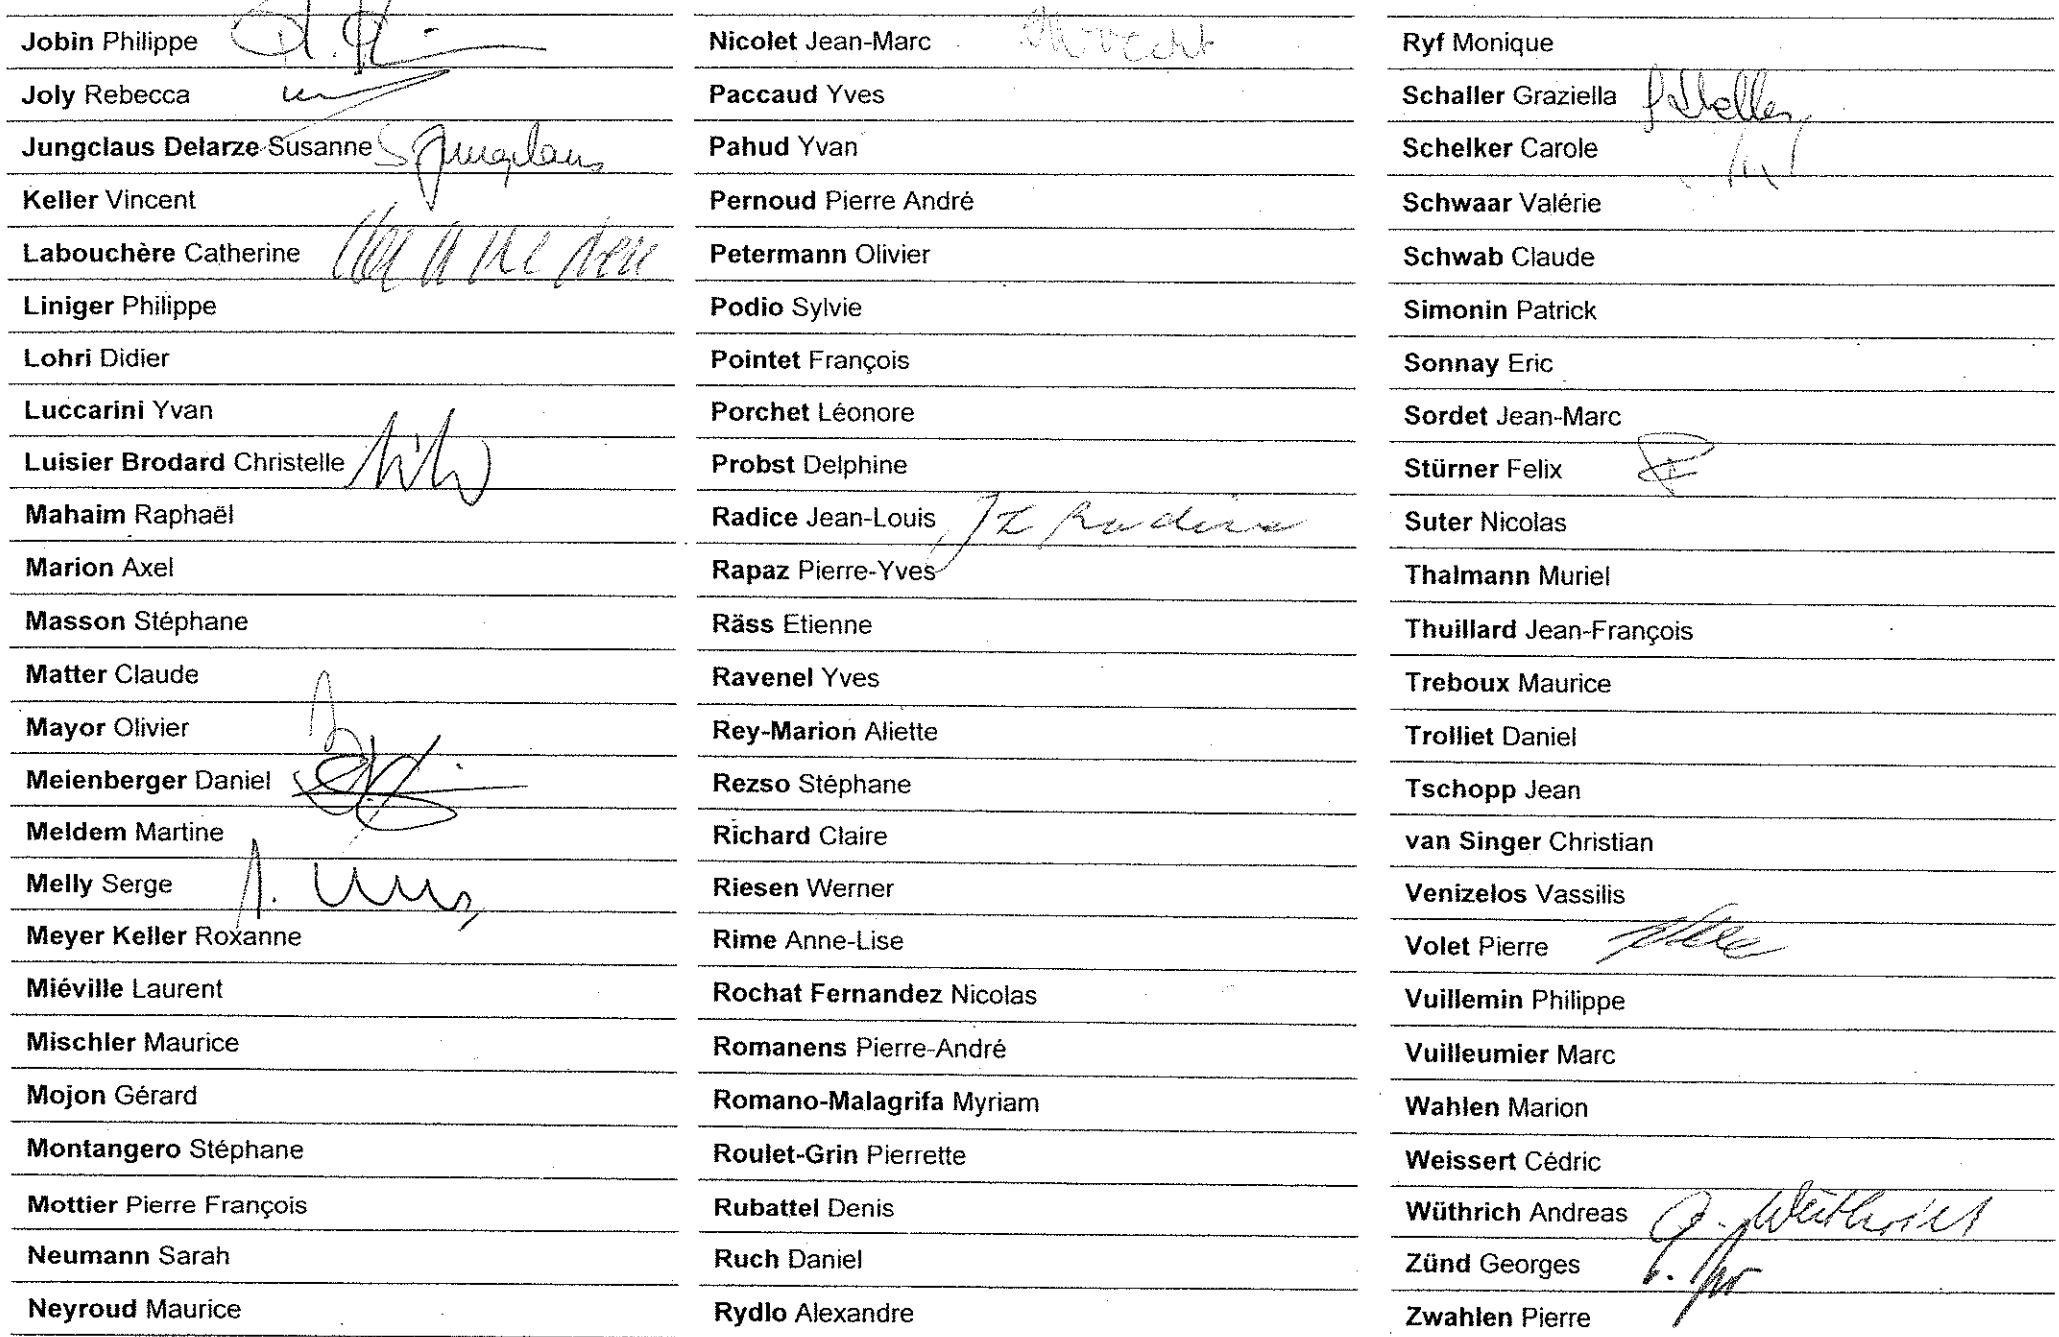 Jobin Philippe
Joly Rebecca
Jungclaus Delarze Susanne S Jungclaus
Keller Vincent
Labouchère Catherine
Liniger Philippe
Lohri Didier
Luccarini Yvan
Luisier Brodard Christelle
Mahaim Raphaël
Marion Axel
Masson Stéphane
Matter Claude
Mayor Olivier
Meienberger Daniel
Meldem Martine
Melly Serge
Meyer Keller Roxanne
Miéville Laurent
Mischler Maurice
Mojon Gérard
Montangero Stéphane
Mottier Pierre François
Neumann Sarah
Neyroud Maurice
Nicolet Jean-Marc
Paccaud Yves
Pahud Yvan
Pernoud Pierre André
Petermann Olivier
Podio Sylvie
Pointet François
Porchet Léonore
Probst Delphine
Radice Jean-Louis JL Radice
Rapaz Pierre-Yves
Räss Etienne
Ravenel Yves
Rey-Marion Aliette
Rezso Stéphane
Richard Claire
Riesen Werner
Rime Anne-Lise
Rochat Fernandez Nicolas
Romanens Pierre-André
Romano-Malagrifa Myriam
Roulet-Grin Pierrette
Rubattel Denis
Ruch Daniel
Rydlo Alexandre
Ryf Monique
Schaller Graziella
Schelker Carole
Schwaar Valérie
Schwab Claude
Simonin Patrick
Sonnay Eric
Sordet Jean-Marc
Stürner Felix
Suter Nicolas
Thalmann Muriel
Thuillard Jean-François
Treboux Maurice
Trolliet Daniel
Tschopp Jean
van Singer Christian
Venizelos Vassilis
Volet Pierre
Vuillemin Philippe
Vuilleumier Marc
Wahlen Marion
Weissert Cédric
Wüthrich Andreas A. Wüthrich
Zünd Georges
Zwahlen Pierre